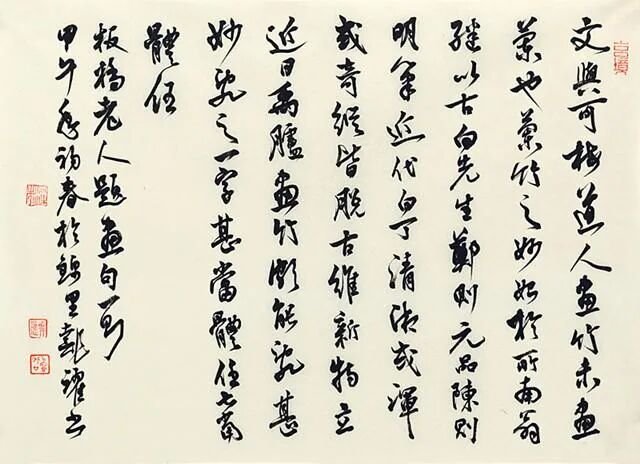 文與可梅道人畫竹未畫
蘭也蘭竹之妙始於所南翁
繼以古白先生鄭則元品陳則
明筆近代白丁清湘或渾
或奇縱皆脫古維新特立
近日禹臚畫竹頗能亂甚
妙亂之一字甚當體任當
體任
板橋老人題畫句一
甲午初春於里書